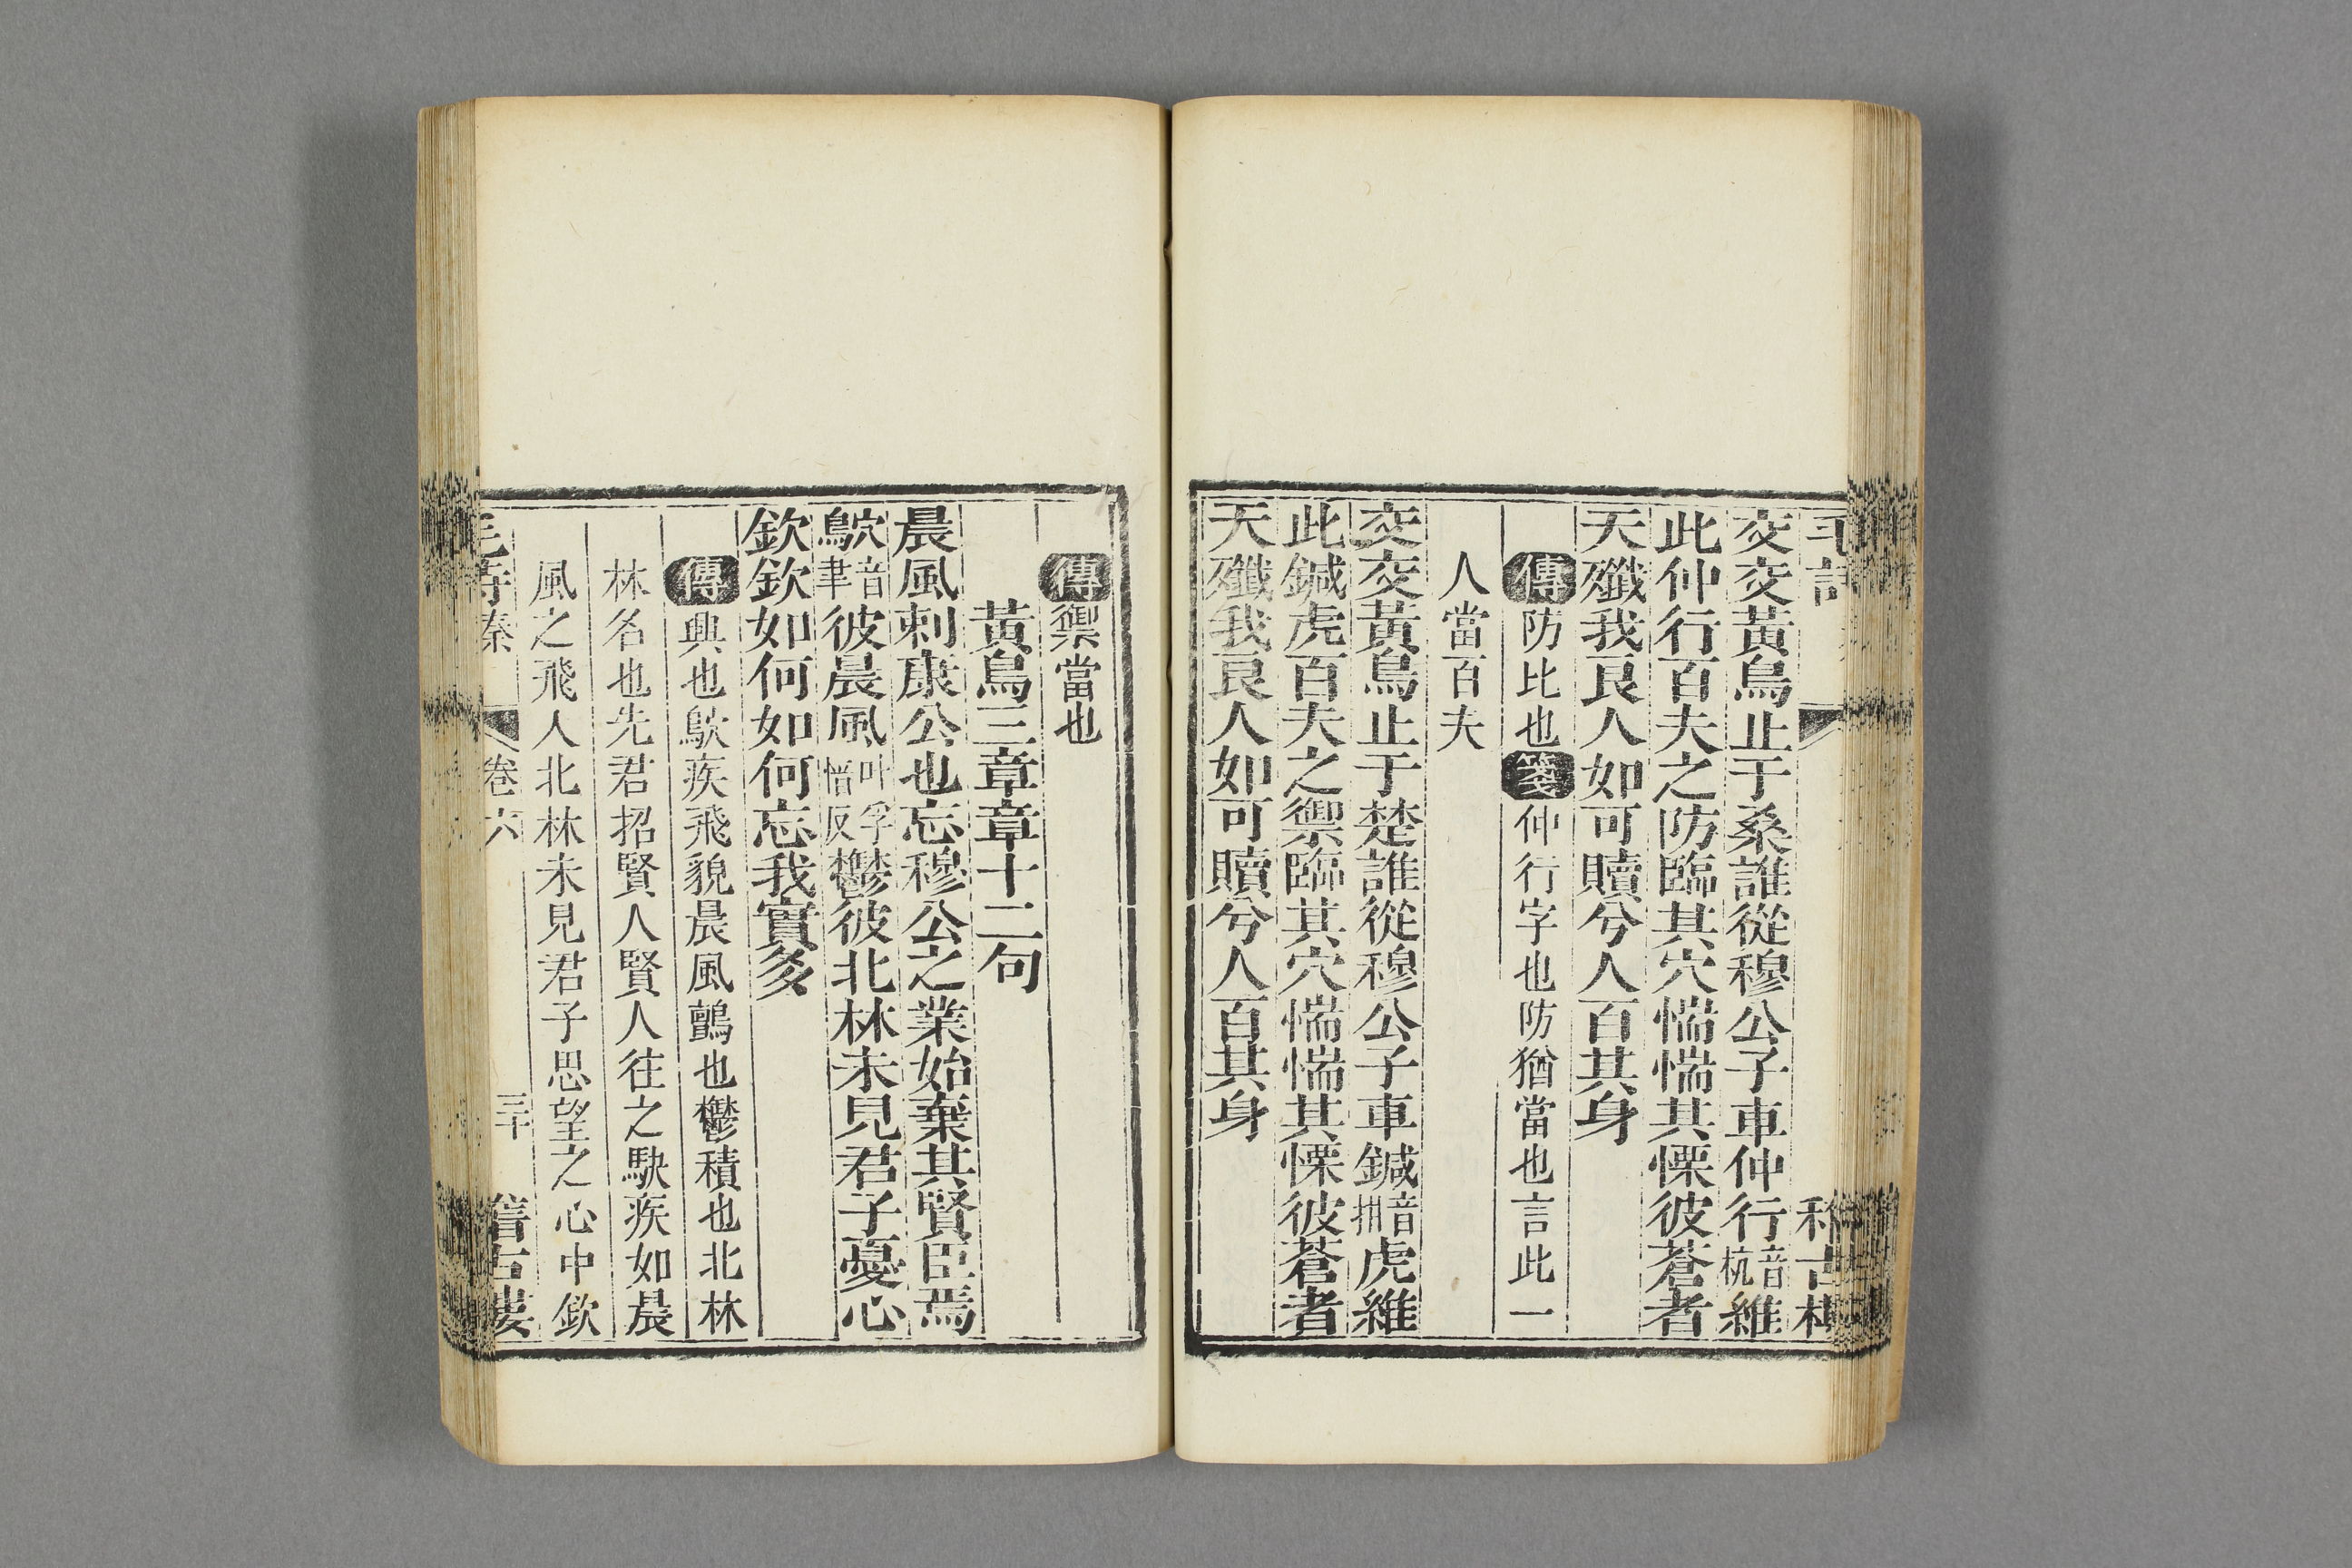 毛詩 稽古樓
交交黃鳥止于桑誰從穆公子車仲行音杭維
此仲行百夫之防臨其穴惴惴其慄彼蒼者
天殲我良人如可贖兮人百其身
傳防比也箋仲行字也防猶當也言此一
人當百夫
交交黃鳥止于楚誰從穆公子車鍼音拑虎維
此鍼虎百夫之禦臨其穴惴惴其慄彼蒼者
天殲我良人如可贖兮人百其身
傳禦當也
黃鳥三章章十二句
晨風刺康公也忘穆公之業始棄其賢臣焉
鴥音聿彼晨風叶孚愔反鬱彼北林未見君子憂心
欽欽如何如何忘我實多
傳興也鴥疾飛貌晨風鸇也鬱積也北林
林名也先君招賢人賢人往之駃疾如晨
風之飛入北林未見君子思望之心中欽
毛詩秦 卷六 三十 稽古樓